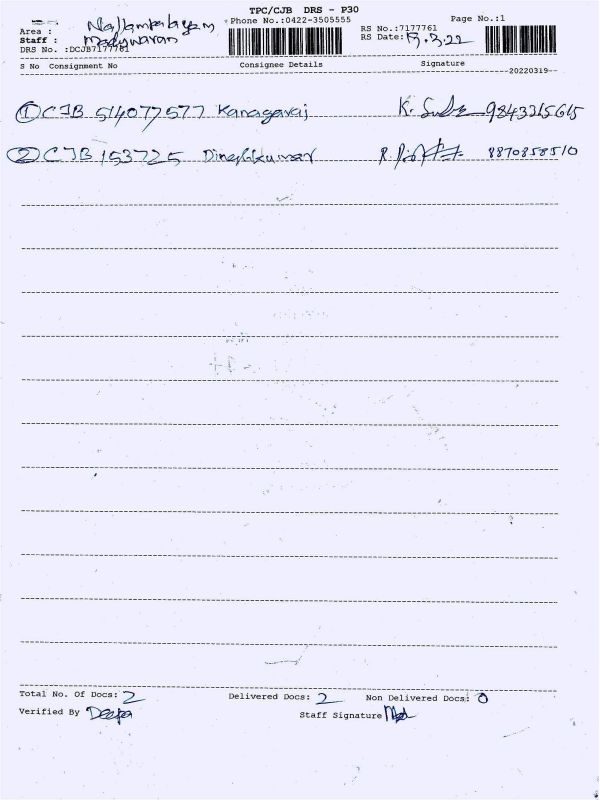 TPC/CJB DRS - P30
Area : Nallampalayam Phone No.:0422-3505555 RS No.:7177761 Page No.:1
Staff : Madhuvaran RS Date: 19.3.22
DRS No. :DCJB7177761
S No Consignment No Consignee Details Signature
20220319
1 CJB 514077577 Kanagaraj K. 9843215615
2 CJB 153725 Dineshkumar 8870858510
Total No. Of Docs: 2 Delivered Docs: 2 Non Delivered Docs: 0
Verified By Deepa Staff Signature